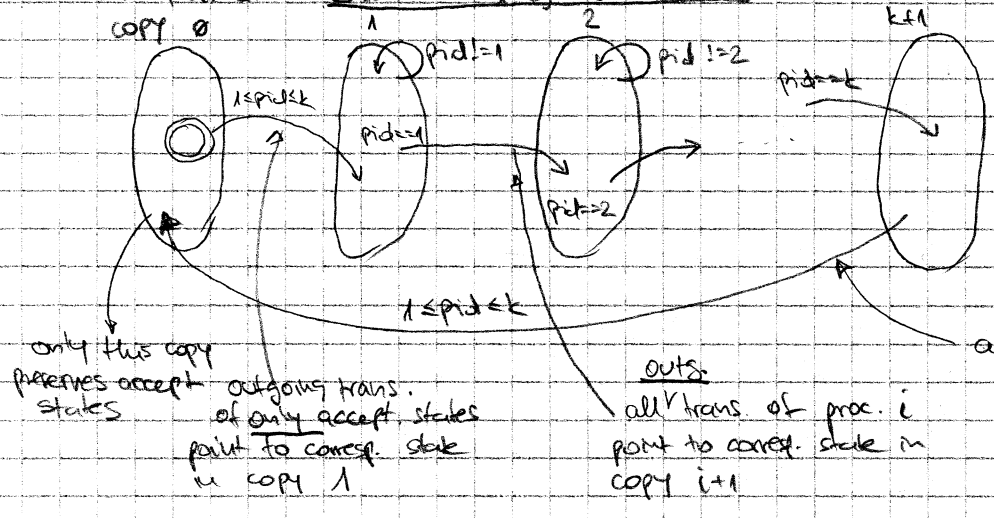 copy 0
1
2
k+1
pid!=1
pid!=2
1≤pid≤k
pid==k
pid==1
pid==2
1≤pid≤k
a
only this copy
preserves accept
states
outgoing trans.
of only accept. states
point to corresp. state
in copy 1
outg.
all trans. of proc. i
point to corresp. state in
copy i+1